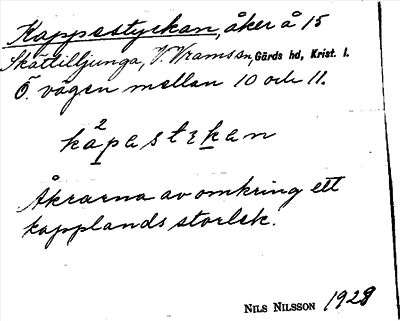 Kappestyckan, åker å 15
Skättilljunga, V. Vramssn, Gärds hd, Krist. l.
Ö. vägen mellan 10 och 11.
2
kapastekan
Åkrarna av omkring ett
kapplands storlek.
NILS NILSSON 1928